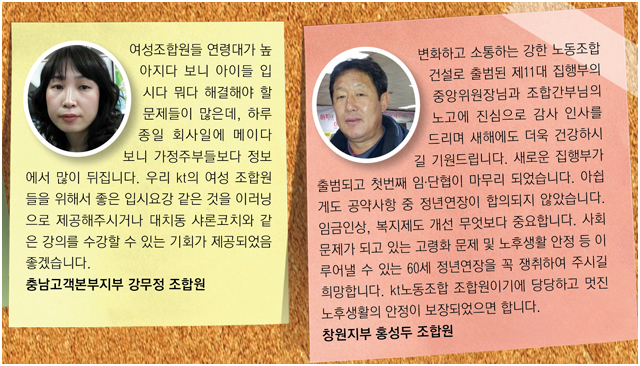 여성조합원들 연령대가 높
아지다 보니 아이들 입
시다 뭐다 해결해야 할
문제들이 많은데, 하루
종일 회사일에 메이다
보니 가정주부들보다 정보
에서 많이 뒤집니다. 우리 kt의 여성 조합원
들을 위해서 좋은 입시요강 같은 것을 이러닝
으로 제공해주시거나 대치동 샤론코치와 같
은 강의를 수강할 수 있는 기회가 제공되었음
좋겠습니다.
충남고객본부지부 강무정 조합원
변화하고 소통하는 강한 노동조합
건설로 출범된 제11대 집행부의
중앙위원장님과 조합간부님의
노고에 진심으로 감사 인사를
드리며 새해에도 더욱 건강하시
길 기원드립니다. 새로운 집행부가
출범되고 첫번째 임·단협이 마무리 되었습니다. 아쉽
게도 공약사항 중 정년연장이 합의되지 않았습니다.
임금인상, 복지제도 개선 무엇보다 중요합니다. 사회
문제가 되고 있는 고령화 문제 및 노후생활 안정 등 이
루어낼 수 있는 60세 정년연장을 꼭 쟁취하여 주시길
희망합니다. kt노동조합 조합원이기에 당당하고 멋진
노후생활의 안정이 보장되었으면 합니다.
창원지부 홍성두 조합원